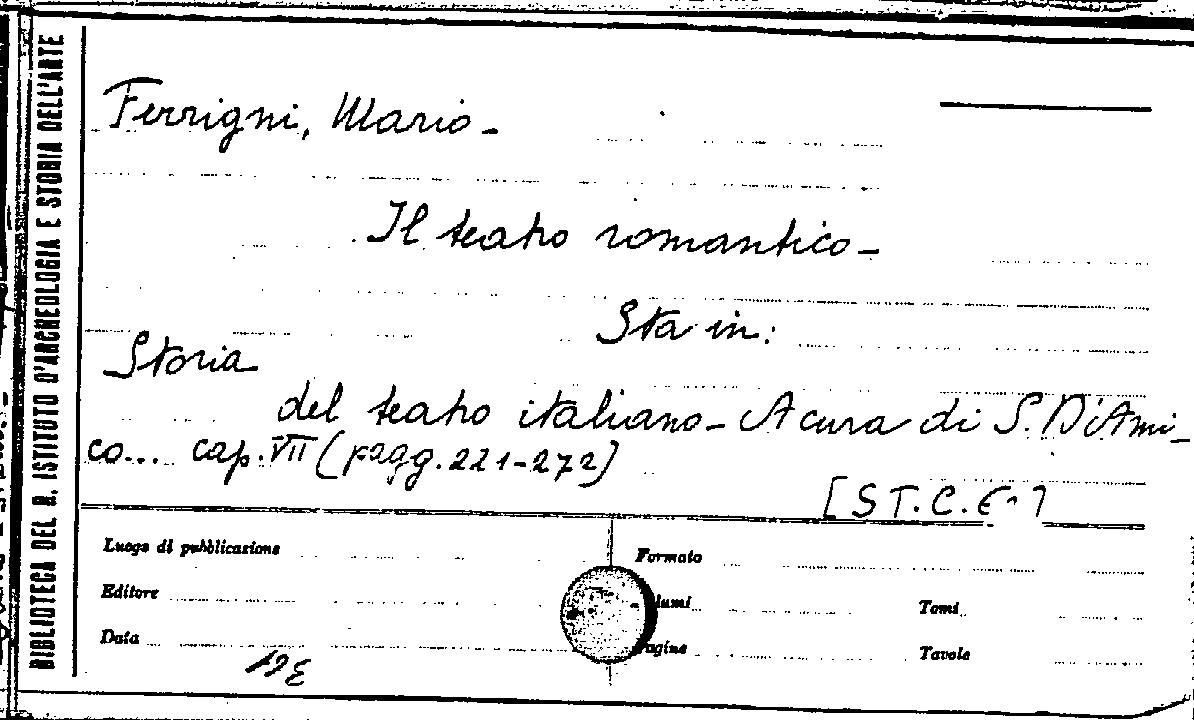 BIBLIOTECA DEL R. ISTITUTO D'ARCHEOLOGIA E STORIA DELL'ARTE
Ferrigni, Mario -
Il teatro romantico -
Sta in:
Storia
del teatro italiano - A cura di S. D'Ami-
co... cap. VII (pagg. 221-272)
[S T. C.
Luogo di pubblicazione
Formato
Editore
lumi
Tomi
Data
Pagine
Tavole